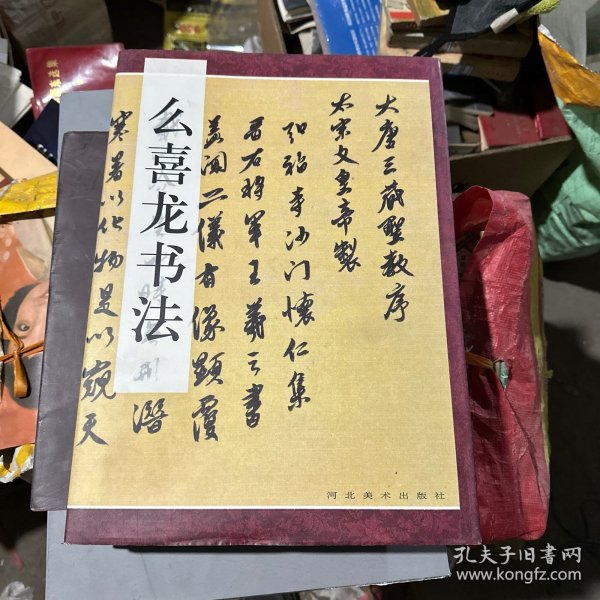 么喜龙书法
大唐三藏聖教序
太宗文皇帝製
弘福寺沙门懷仁集
晋右将軍王羲之書
盖闻二儀有像顯覆
潛
寒暑以化物是以窺天
河北美术出版社
孔夫子旧書网
www.kongfz.com